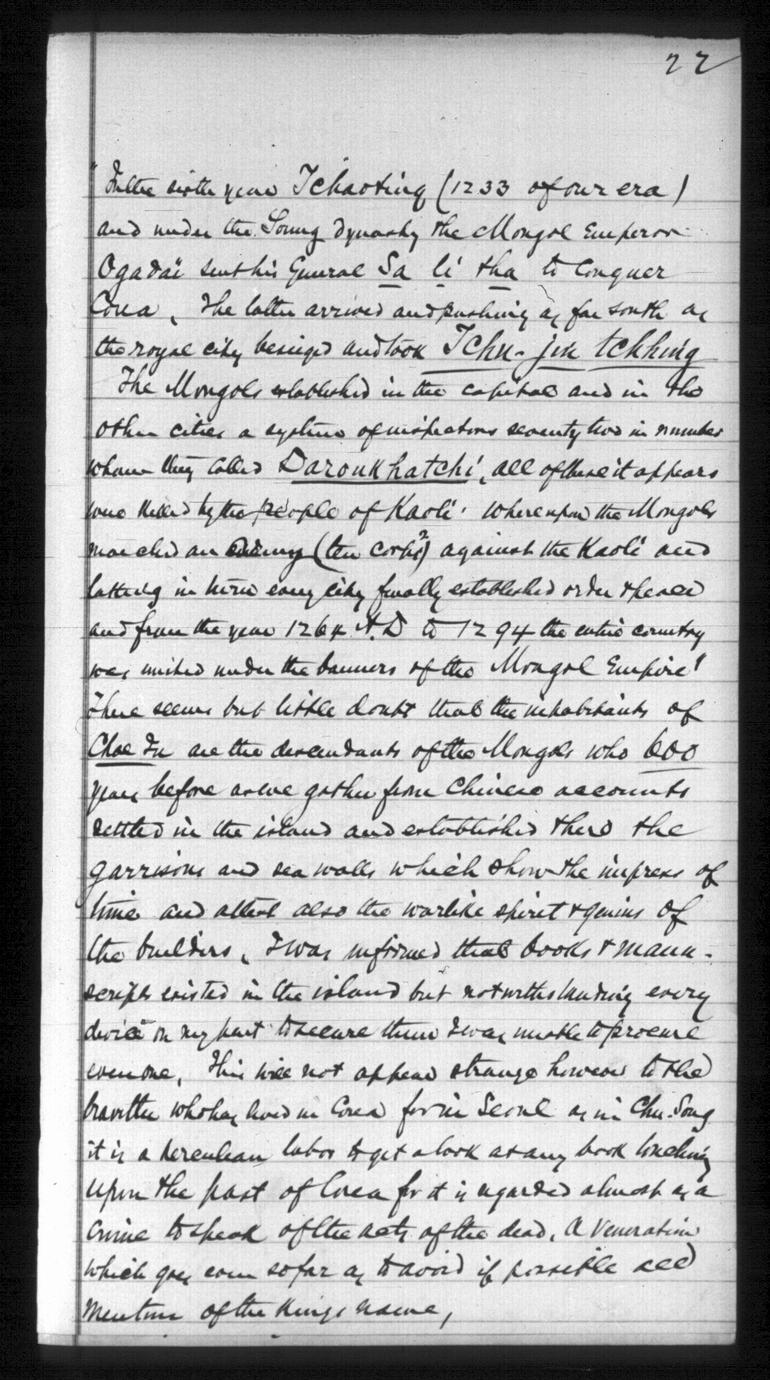 22
"In the sixth year Tchaoting (1233 of our era)
and under the Soung dynasty the Mongol Emperor
Ogadai sent his General Sa li tha to Conquer
Corea, The latter arrived and pushing as far south as
the royal city besieged and took Tchu-jin tchhing
The Mongols established in the capital and in the
other cities a system of inspectors seventy two in number
whom they called Daroukhatchi, all of these it appears
were killed by the people of Kaoli. Whereupon the Mongols
marched an army (ten corps?) against the Kaoli and
battling in turn every city finally established order & peace
and from the year 1264 A.D to 1294 the entire country
was united under the banners of the Mongol Empire"
There seems but little doubt that the inhabitants of
Chae Ju are the descendants of the Mongols who 600
years before as we gather from Chinese accounts
settled in the island and established there the
garrisons and sea walls which show the impress of
time and attest also the warlike spirit & genius of
the builders, I was informed that books & manu-
scripts existed in the island but notwithstanding every
device on my part to secure them I was unable to procure
even one, This will not appear strange however to the
traveller who has lived in Corea for in Seoul as in Chu-Song
it is a herculean labor to get a look at any book touching
upon the past of Corea for it is regarded almost as a
crime to speak of the acts of the dead, a veneration
which goes even so far as to avoid if possible all
mention of the Kings name,